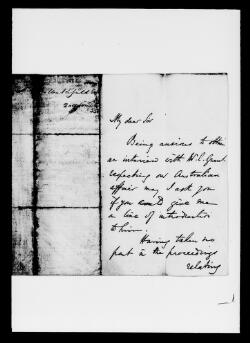 My dear Sir
Being anxious to obtain
an interview with Mr C. Grant
respecting our Australian
affairs may I ask you
if you could give me
a line of introduction
to him.
Having taken no
part in the proceedings
relating